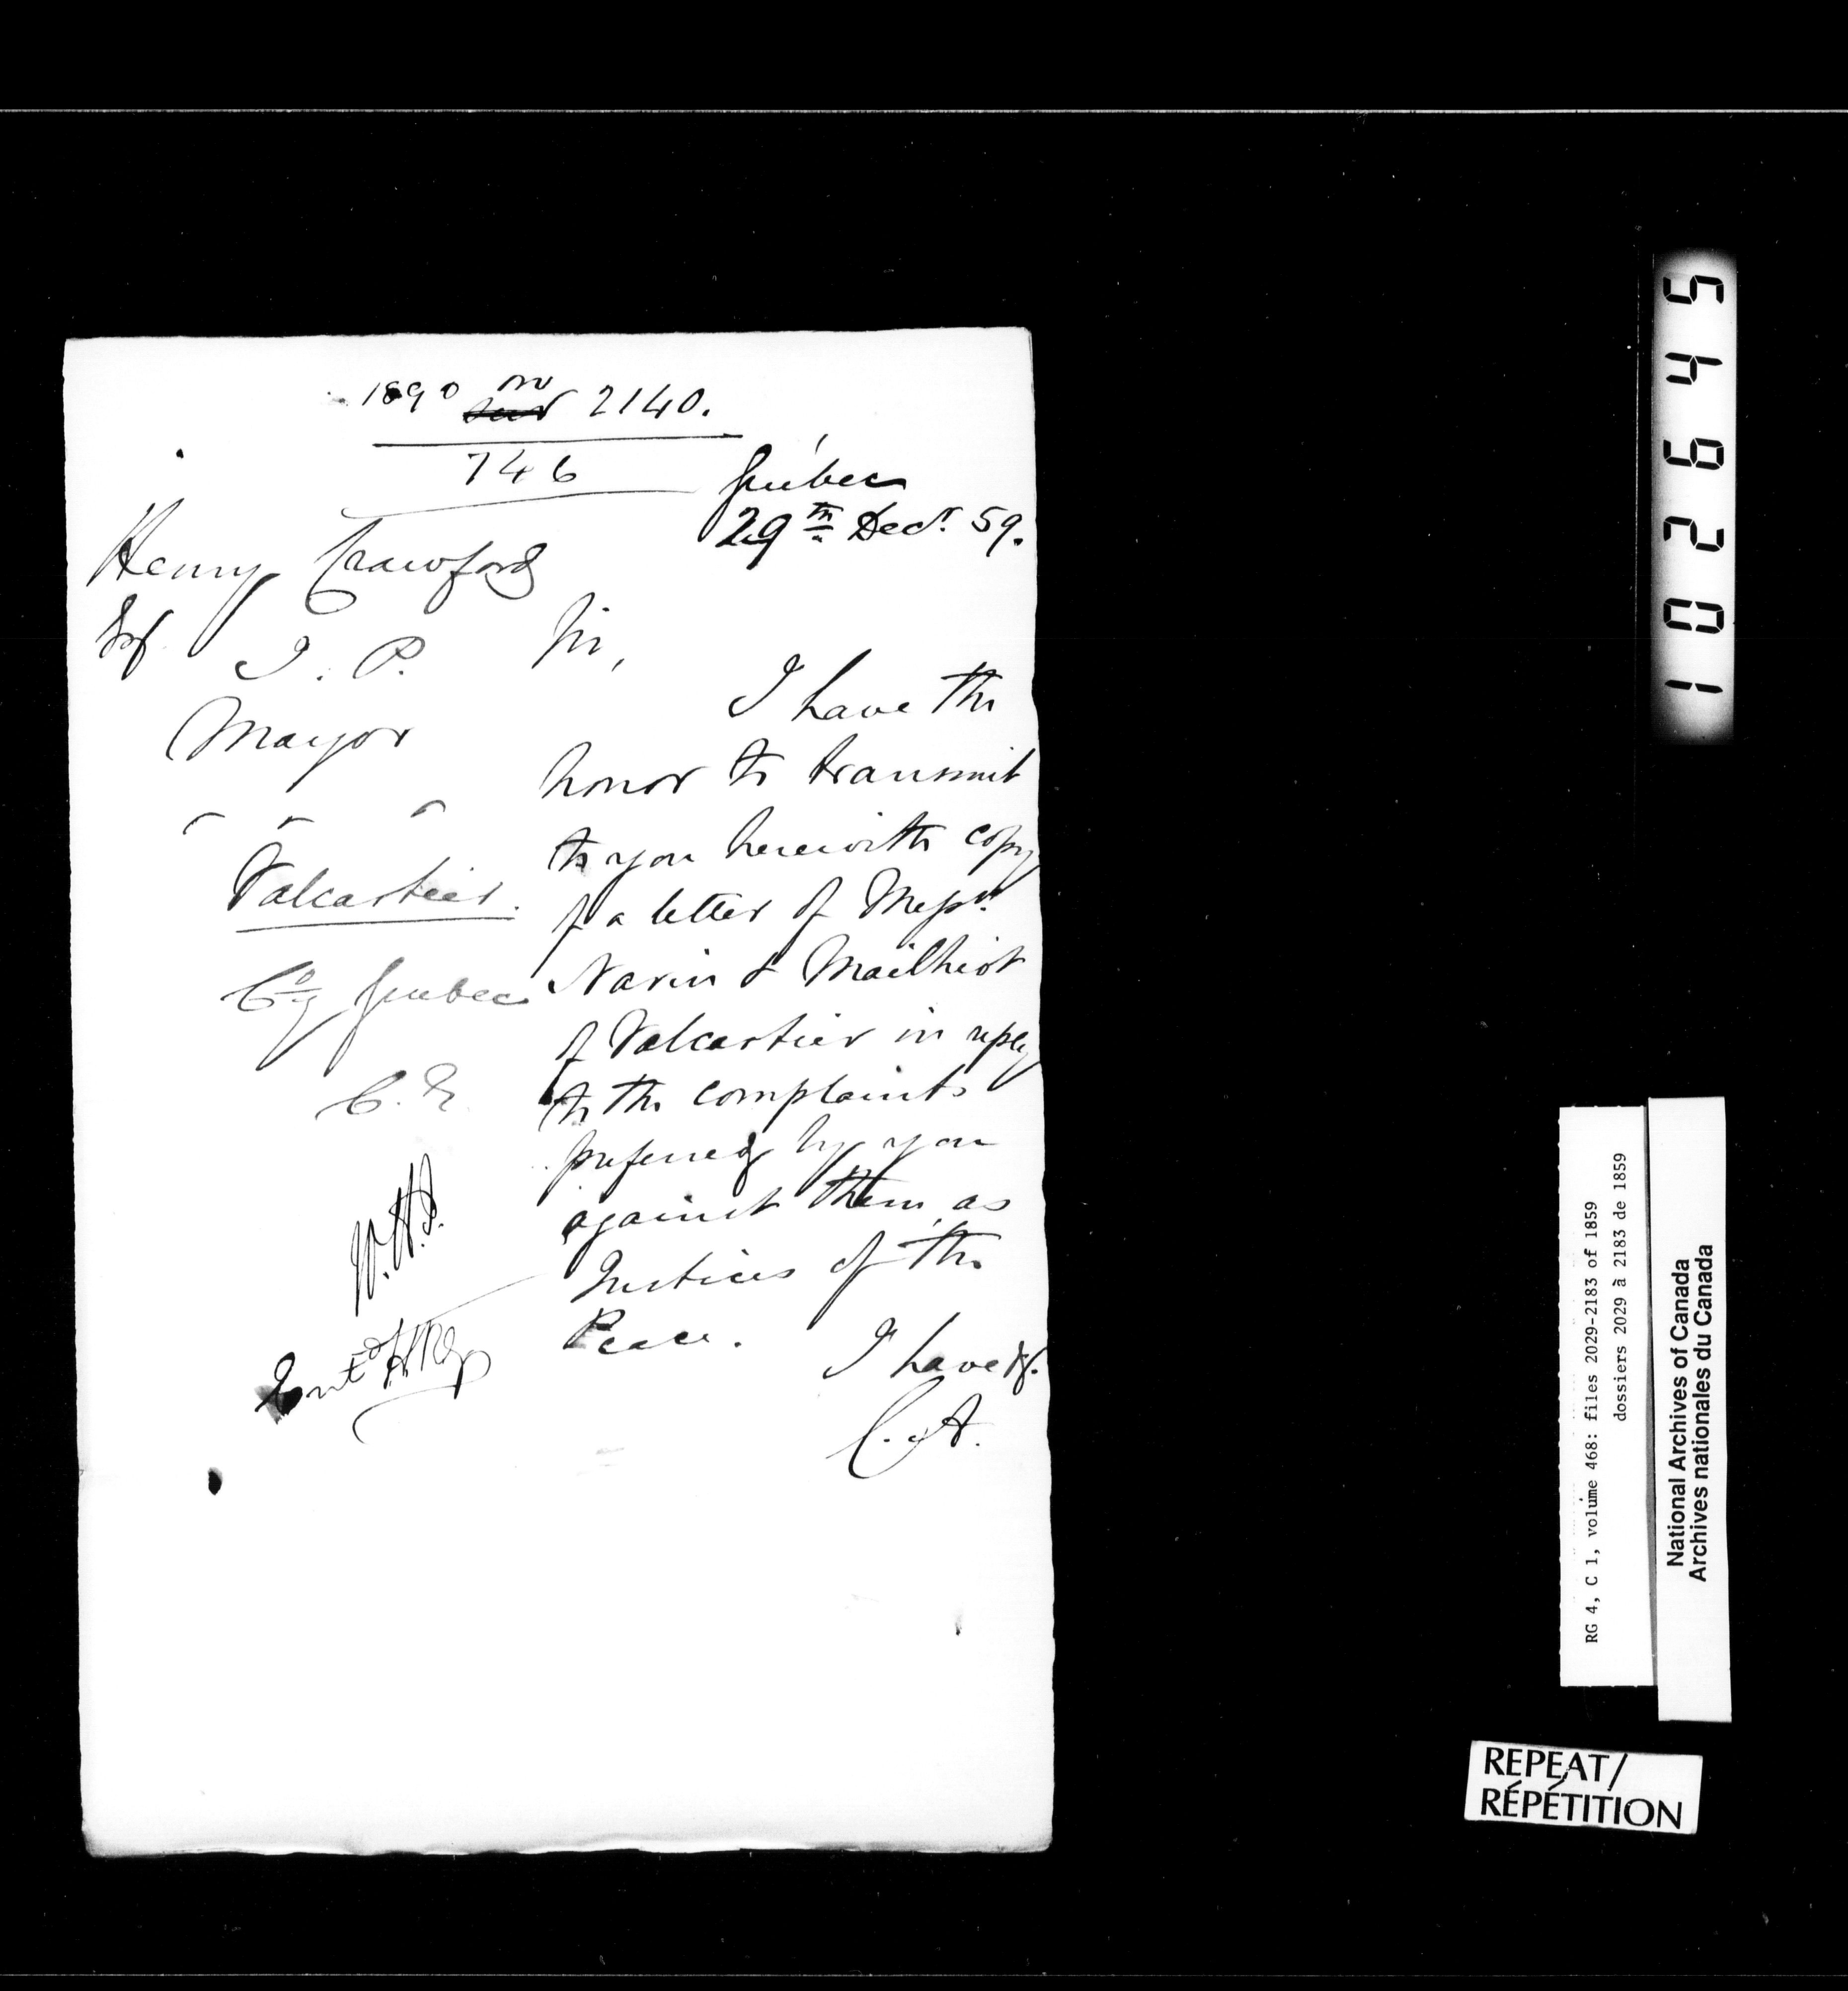 1890 on 2140.
746
Quebec
29th Decr. 59.
Henry Crawford
Esq.
J. P.
Mayor
" " "
Valcartier.
Coy Quebec
C. E.
Sir,
I have the
honor to transmit
to you herewith copy
of a letter of Messrs
Navin & Mailhiot
of Valcartier in reply
to the complaints
preferred by you
against them as
Justices of the
Peace.
I have &.
C. A.
Entd
1 0 2 6 4 5
RG 4, C 1, volume 468: files 2029-2183 of 1859
dossiers 2029 à 2183 de 1859
National Archives of Canada
Archives nationales du Canada
REPEAT/
RÉPÉTITION